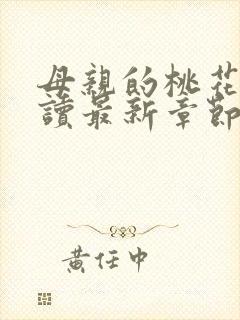 母親的桃花
讀最新章節
黃任中